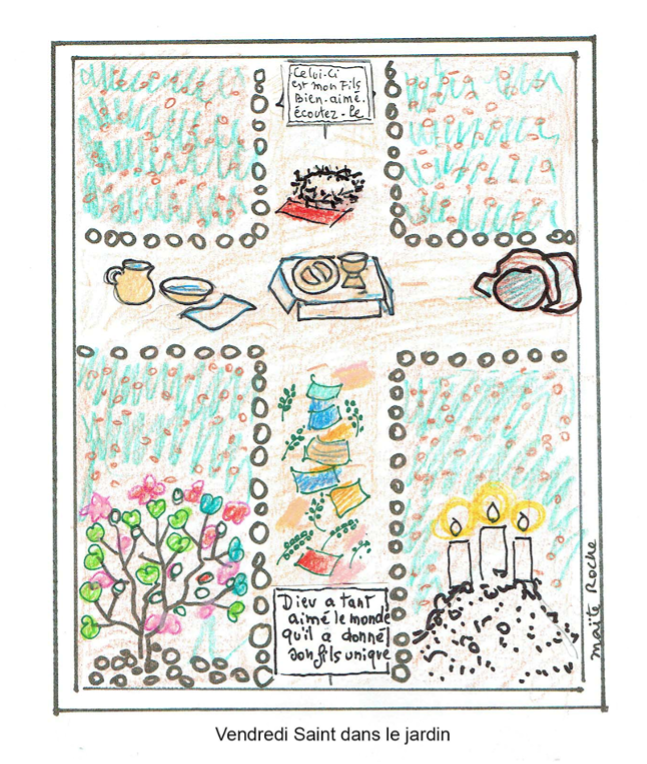 Celui-Ci
est mon Fils
Bien-aimé.
écoutez-le
Dieu a tant
aimé le monde
qu'il a donné
son fils unique
Maïté Roche
Vendredi Saint dans le jardin